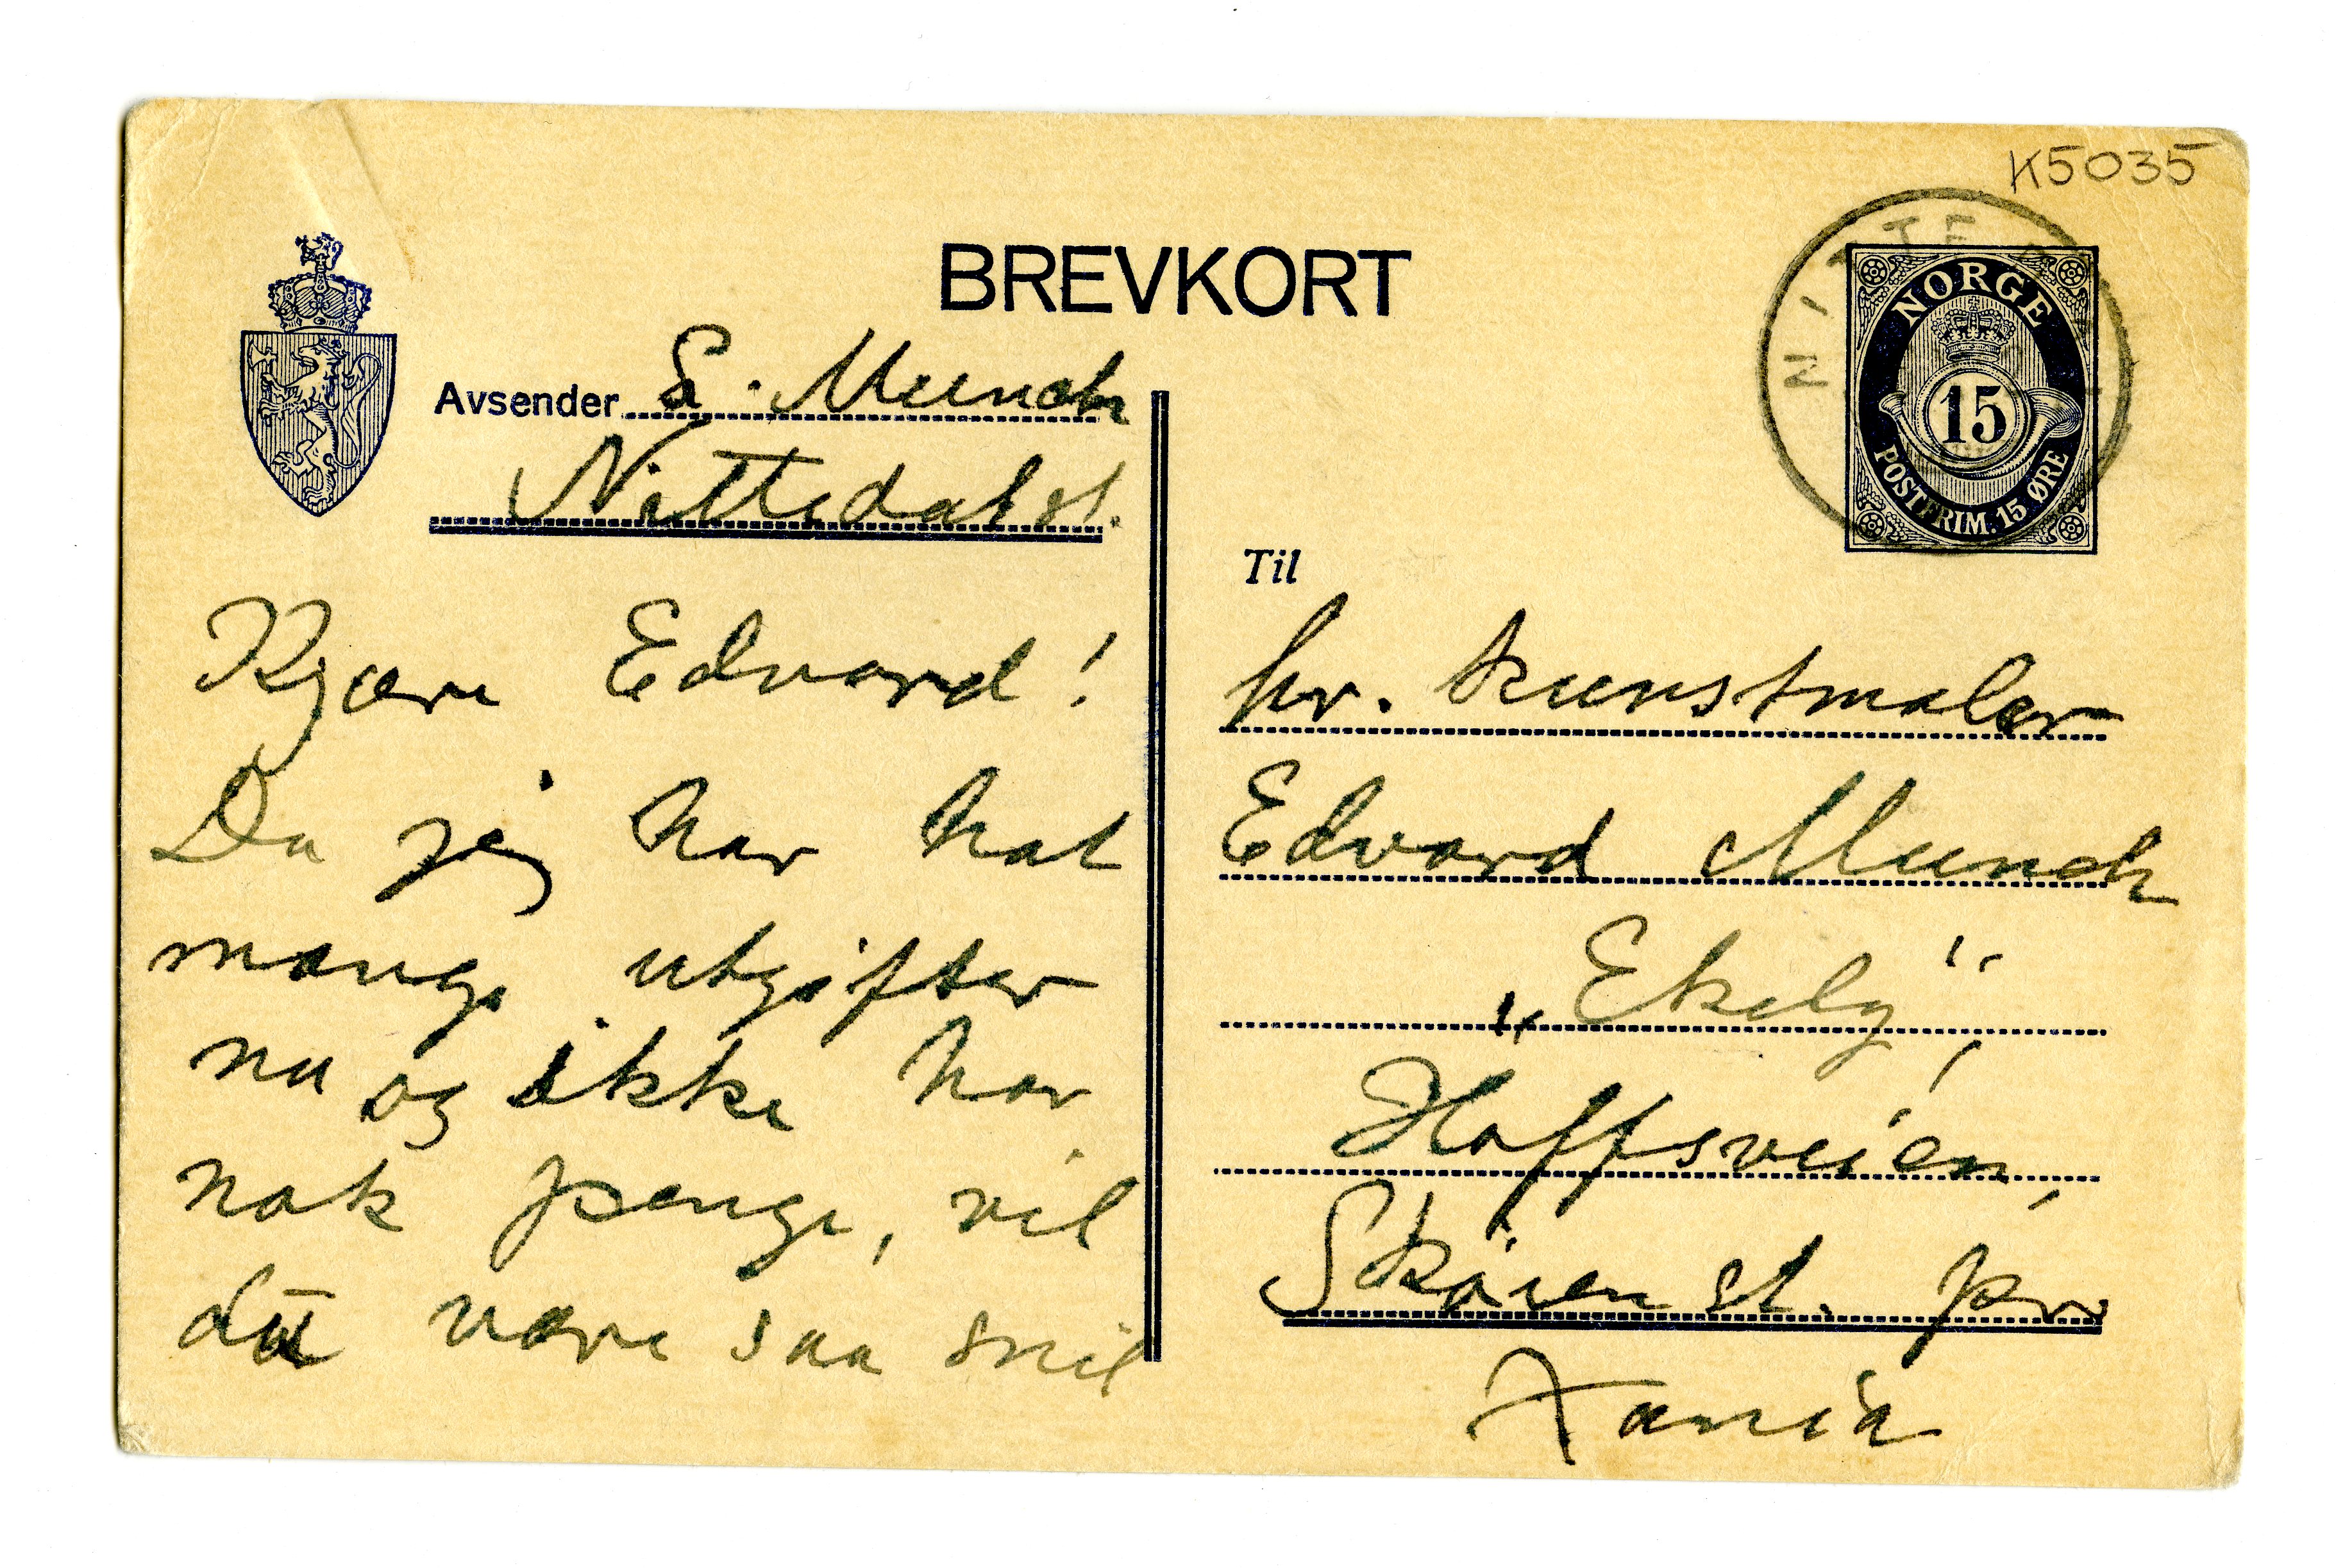 K5035
BREVKORT
NITTE
NORGE
15
POSTFRIM. 15 ØRE
Avsender S. Munch
Nittedal st.
Kjære Edvard!
Da jeg har hat
mange utgifter
nu og ikke har
nok penge, vil
du være saa snil
Til
hr. kunstmaler
Edvard Munch
„Ekely",
Hoffsveien,
Skøien st. pr.
Xania